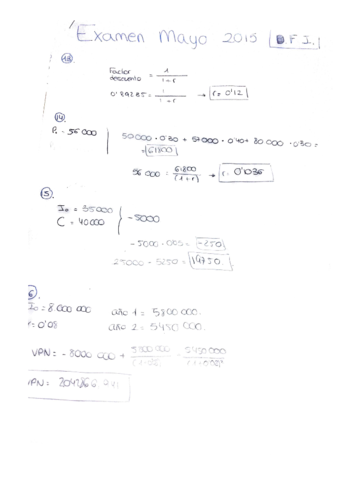 Examen Mayo 2015 D.F.I.
13
Factor descuento = 1 / 1+r
0'89285 = 1 / 1+r → r = 0'12
14
P. = 56000
50000 · 0'30 + 57000 · 0'40 + 80000 · 0'30 =
= 61800
56000 = 61800 / (1+r) → r. 0'036
5
I = 35000
C = 40000
-5000
-5000 · 005 = -250
25000 - 5250 = 19750
6.
Io = 8.000 000
r = 0'08
año 1 = 5800 000.
año 2 = 5450 000.
VPN = - 8000 000 +
VPN =